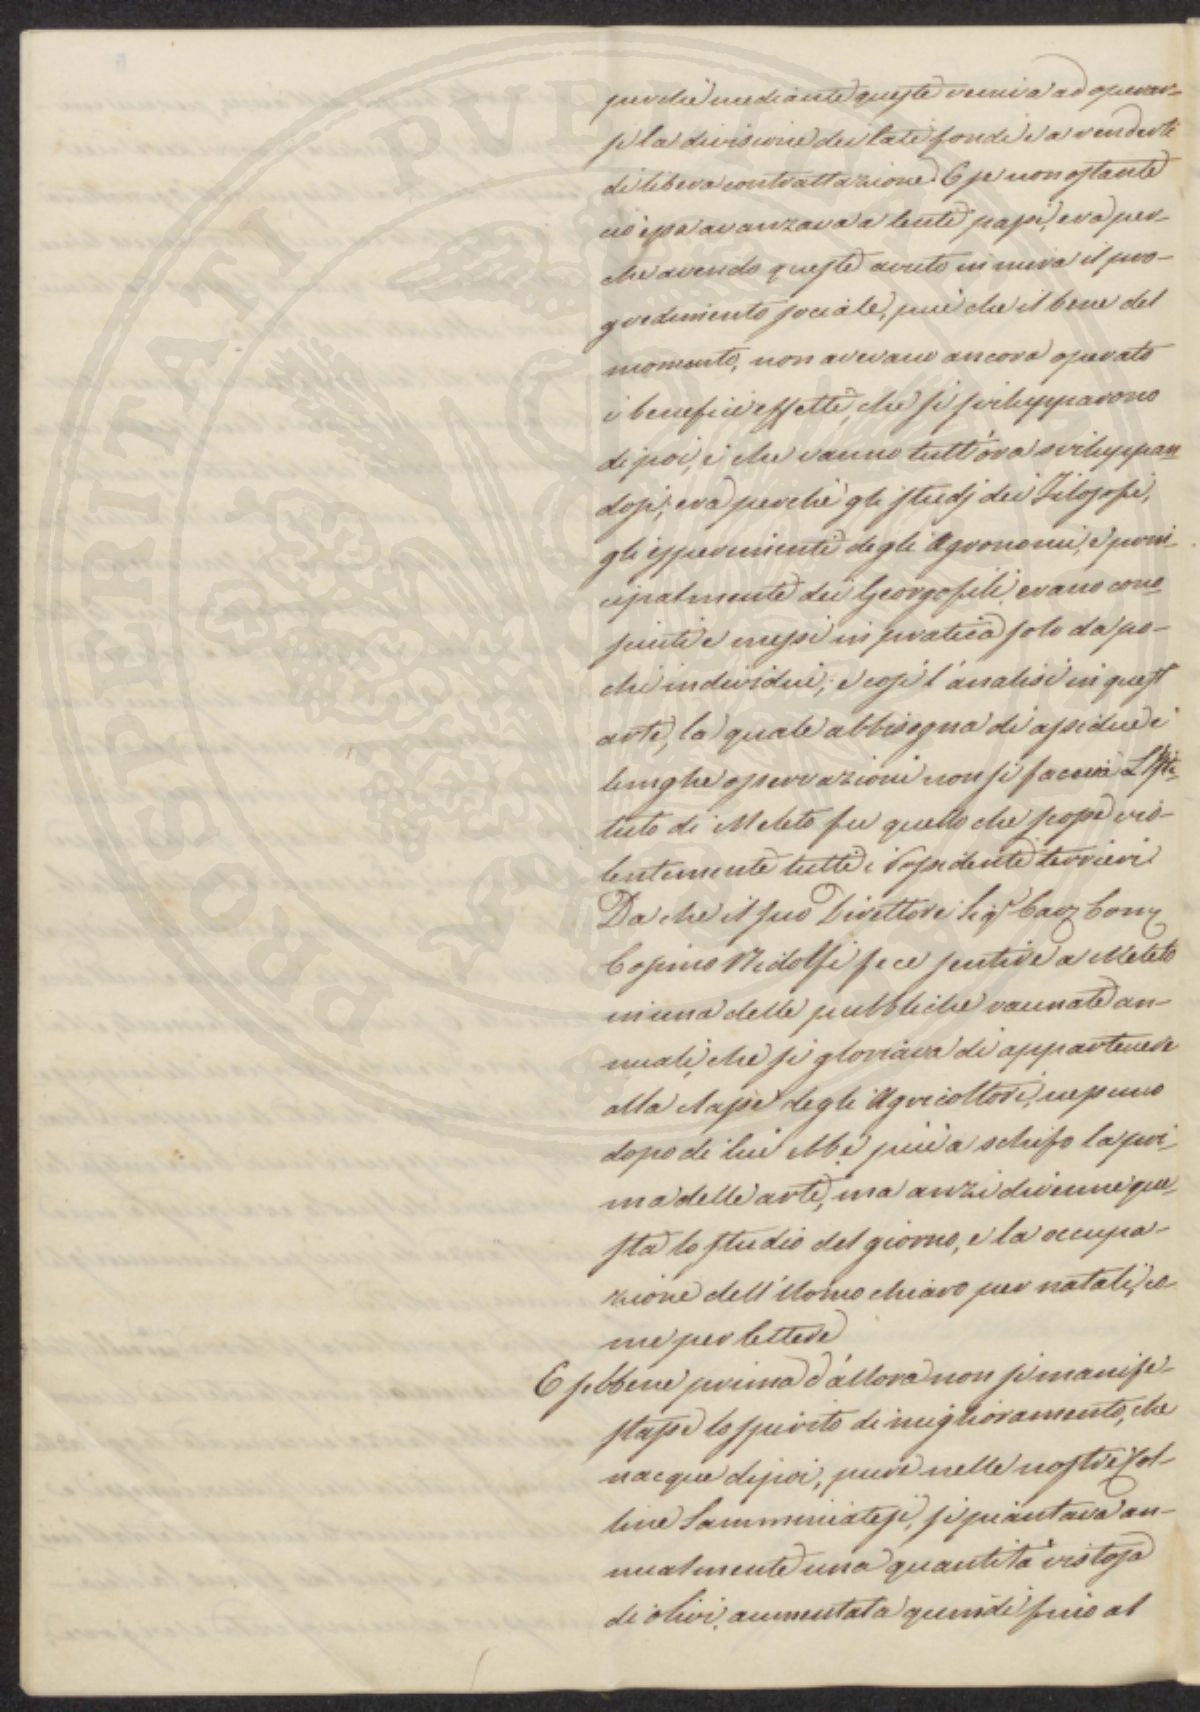 perchè mediante queste veniva ad operar-
si la divisione dei lati fondi e a renderli
di libera contrattazione. E se non ostante
ciò essa avanzava a lenti passi, era per-
chè avendo queste avuto in mira il pro-
gredimento sociale, più che il bene del
momento, non avevano ancora operato
i benefici effetti, che si svilupparono
di poi, e che vanno tutt'ora sviluppan
dosi; era perchè gli studj dei Filosofi,
gli esperimenti degli Agronomi, e prin-
cipalmente dei Georgofili, erano cono
sciuti e messi in pratica solo da po-
chi individui; e così l'analisi in quest'
arte, la quale abbisogna di assidue e
lunghe osservazioni non si faceva L'Isti-
tuto di Meleto fu quello che scosse vio-
lentemente tutti i Possidenti terrieri
Da che il suo Direttore Sigr Cavr Comr
Cosimo Ridolfi fece sentire a Meleto
in una delle pubbliche raunate an-
nuali, che si gloriava di appartenere
alla classe degli Agricoltori, nessuno
dopo di lui ebbe più a schifo la pri-
ma delle arti, ma anzi divenne que-
sta lo studio del giorno, e la occupa-
zione dell'Uomo chiaro per natali, co-
me per lettere
E sebbene prima d'allora non si manife-
stasse lo spirito di miglioramento, che
nacque di poi, pure nelle nostre Col-
line Samminiatesi, si piantava an-
nualmente una quantità vistosa
di olivi, aumentata quindi fino al
PROSPERITATI PVBLICAE